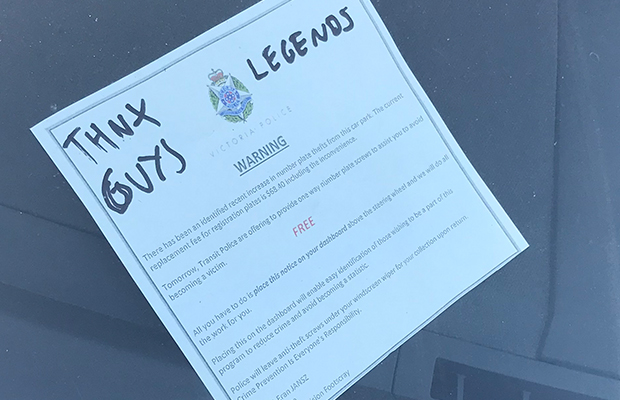 THNX
GUYS
LEGENDS
VICTORIA POLICE
WARNING
There has been an identified recent increase in number plate thefts from this car park. The current
replacement fee for registration plates is $68.40 including the inconvenience.
Tomorrow, Transit Police are offering to provide one way number plate screws to assist you to avoid
becoming a victim.
FREE
All you have to do is place this notice on your dashboard above the steering wheel and we will do all
the work for you.
Placing this on the dashboard will enable easy identification of those wishing to be a part of this
program to reduce crime and avoid becoming a statistic.
Police will leave anti-theft screws under your windscreen wiper for your collection upon return.
Crime Prevention Is Everyone's Responsibility.
Fran JANSZ
Footscray